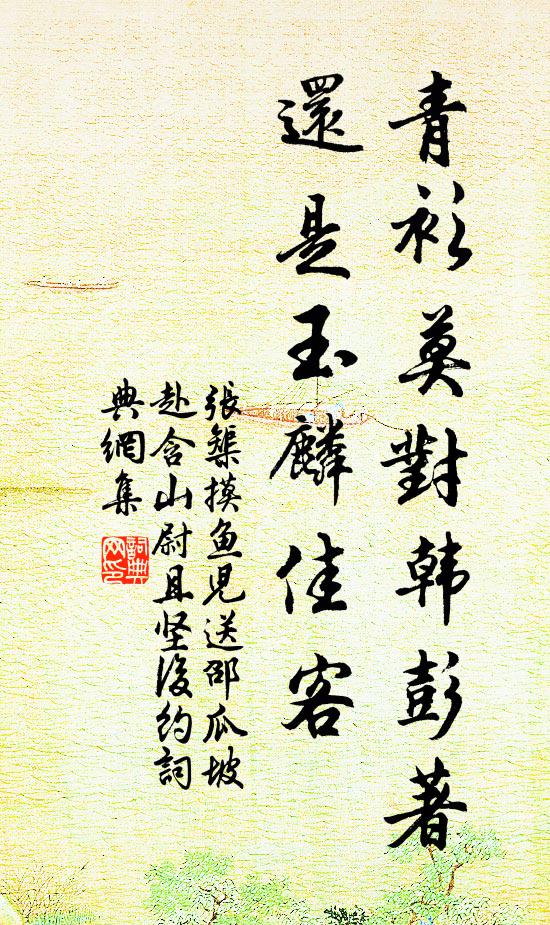 青衫莫對韩彭著
還是玉麟佳客
張榘摸鱼児送邵瓜坡
赴含山尉且坚後约詞
典網集
詞典网印